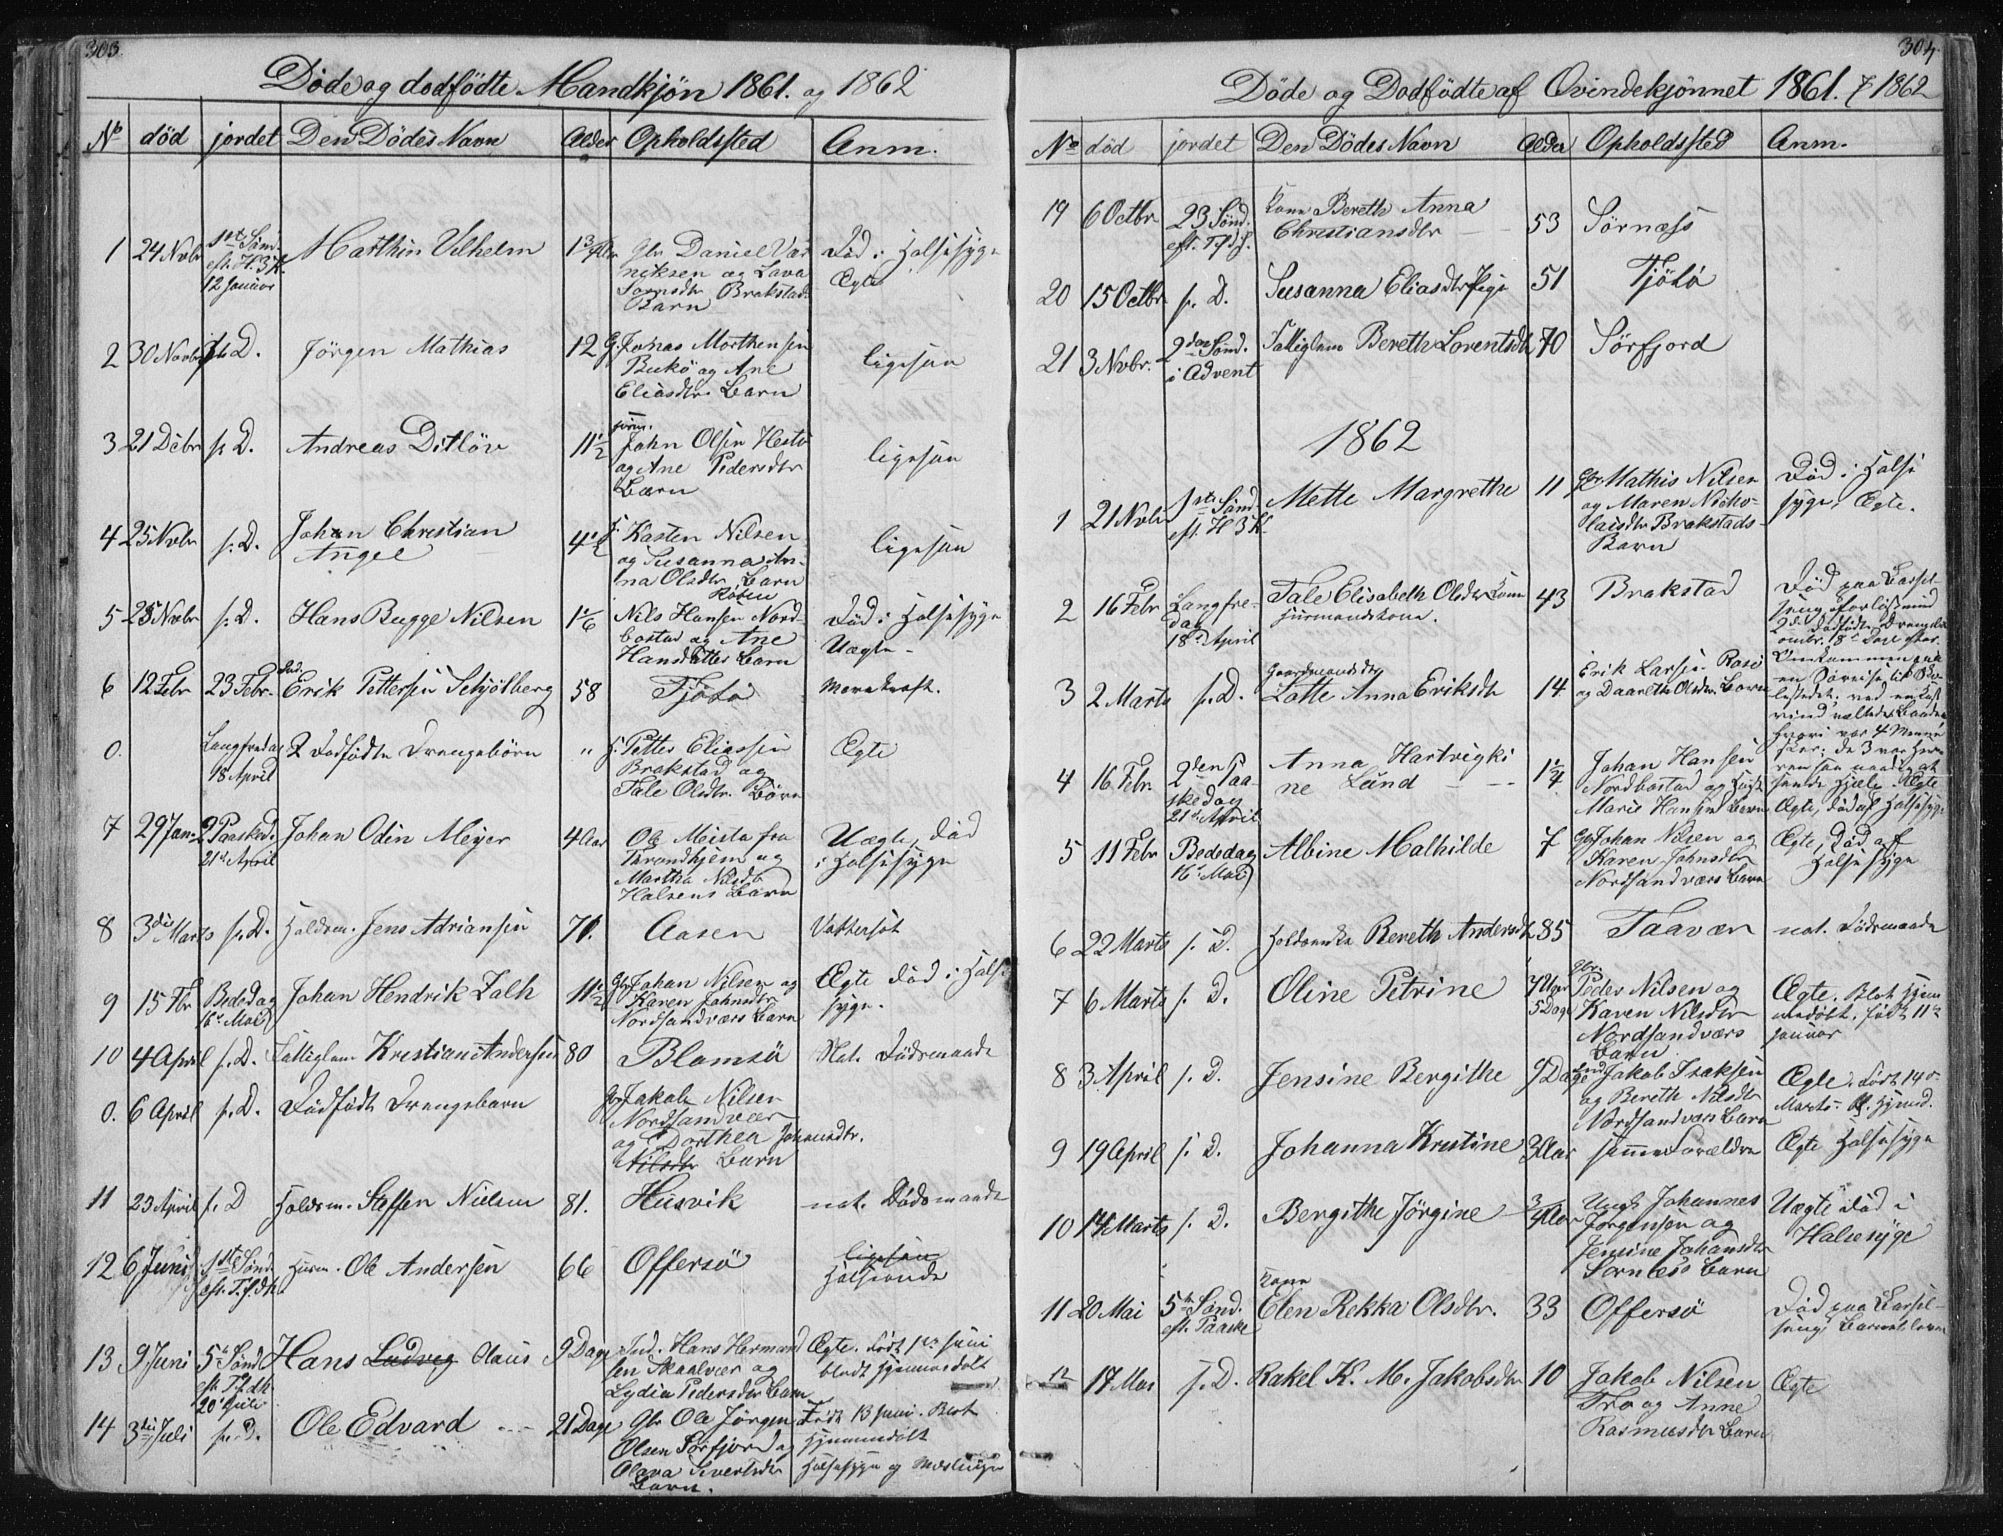 303.
Døde og dødfödte Mandkjön 1861. og 1862
No död jordet Den Dödes Navn Alder Opholdssted Anm.
1 24 Novbr 1ste Sönd. eft. H. 3 K. 12 Januar Marthin Vilhelm Gbr Daniel
og Lava
Brakstad
Barn
Död i Halsesyge
Ægte
2 30 Novbr s. D. Jörgen Mathias 12 G. Jonas Morthensen
og Ane
Eliasdtr. Barn
ligesaa
3 21 Debr s. D. Andreas Ditlöv 11 1/2 John Olsen
og Ane Pedersdtr
Barn
ligesaa
4 25 Novbr s. D. Johan Christian
Angel
4 1/2 Karsten Nilsen
og Susanna An-
na Olsdtr. Barn
ligesaa
5 25 Novbr s. D. Hans Bugge Nilsen 1 1/6 Nils Hansen Nord-
bostad og Ane
Hansdatters Barn
Död i Halsesyge
Uægte
6 12 Febr 23 Febr. Ind. Erik Pettersen Schjölberg 58 Tjötö
0. Langfredag
18 April
2 Dödfödte Drengebörn " Petter Eliassen
Brakstad og
Tale Olsdtr. Börn
Ægte
7 29 Jan. 2 Paaskd.
21de April
Johan Odin Meyer 4 Aar Ole Meista fra
Throndhjem og
Martha Nilsdtr
Halsens Barn
Uægte, Död
i Halsesyge
8 3die Marts s. D. Holdsm. Jens Adriansen 71. Aasen Vattersot
9 15 Fbr Bededag
16de Mai
Johan Hendrik Falk 11 1/2 Gbr Johan Nilsen og
Karen Johnsdtr
Nordsandværs Barn
Ægte Död i Halse
syge.
10 4 April s. D. Fattiglem Kristian Andersen 80 Blomsö Nat. Dödsmaade
0. 6 April s. D. Dödfödt Drengebarn Gbr Jakob Nilsen
Nordsandvær
og Dorthea Johnsdtr.
Nilsdtr Barn
11 23 April s. D Holdsm. Steffen Nielsen 81. Husvik nat. Dödsmaade
12 6 Juni 1ste Sönd
eft. T.f.dh.
Huusm. Ole Andersen 66 Offersö ligesaa
Halsonde
13 9 Juni 5te Sönd
eft Tf.dh
20de Juli
Hans Ludvig Olaus 9 Dage Ind. Hans Hermand
sen Skaalvær og
Lydia Pedersdtr Barn
Ægte. Födt 1ste Juni
blot hjemmedöbt
14 3die Juli s. D. Ole Edvard 21 Dage Gbr Ole Jörgen
Olsen Sörfjord og
Olava Sivertsdtr
Barn.
Födt 13 Juni. Blot
hjemmedöbt
Halsesyge og Mæslinger
304.
Döde og Dödfödte af Qvindekjönnet 1861. & 1862
No död jordet Den Dödes Navn Alder Opholdssted Anm.
19 6 Octbr 23 Sönd.
eft. Tfdh.
Kone Bereth Anna
Christiansdtr
53 Sörnæss
20 15 Octbr s. D. Susanna Eliasdtr Pige 51 Tjötö
21 3 Novbr. 2den Sönd.
i Advent
Fattiglem Bereth Lorentsdtr 70 Sörfjord
1862
1 21 Novbr 1ste Sönd
eft H 3 K.
Mette Margrethe 11 Gbr Mathis Nilsen
og Maren Nicho-
laisdtr Brakstads
Barn
Död i Halse
syge, Ægte.
2 16 Febr Langfre-
dag
18de April
Tale Elisabeth Olsdtr Kone
Huusmandskone.
43 Brakstad Död paa Barsel-
seng
3 2 Marts s. D. Gaardmandsdtr
Lotte Anna Eriksdtr
14 Erik Larsen Rosö
og Daareth Olsdtr. Barn
Omkommen paa
en Söreise
4 16 Febr 2den Paa-
skedag
21de April
Anna Hartvigki
ne Lund
1 1/4 Johan Hansen
Nordbostad og
Marie Hansens Barn
Ægte, död af Halsesyge
5 11 Febr Bededag
16de Mai
Albine Mathilde 7 Gbr Johan Nilsen og
Karen Johnsdtr
Nordsandværs Barn
Ægte, Död af
Halsesyge
6 22 Marts s. D. Holdsenke Bereth Andersdtr 85 Taavær nat. Dödsmaade
7 6 Marts s. D. Oline Petrine 7 Uger
5 Dage
Gbr.
Peder Nilsen og
Karen Nilsdtr
Nordsandværs
Barn
Ægte. Blot hjem
medöbt, födt 11te
Januar
8 3 April s. D. Jensine Bergithe Dage Jakob Isaksen
og Bereth Nilsdtr
Nordsandværs Barn
Ægte. Födt 14de
Marts
9 19 April s. D. Johanna Kristine 3 Aar samme Forældre Ægte Halsesyge
10 14 Marts s. D. Bergithe Jörgine 3/4 Aar Ungk Johannes
Jörgensen og
Jensine Johansdtr
Sörnæss Barn
Uægte död i
Halsesyge
11 20 Mai 5te Sönd.
eft. Paaske
Kone
Elen Rekka Olsdtr.
33 Offersö Död paa Barsel-
seng
12 17 Mai s. D. Rakel K. M. Jakobsdtr 10 Jakob Nilsen
Tro og Anne
Rasmusdtr Barn
Ægte